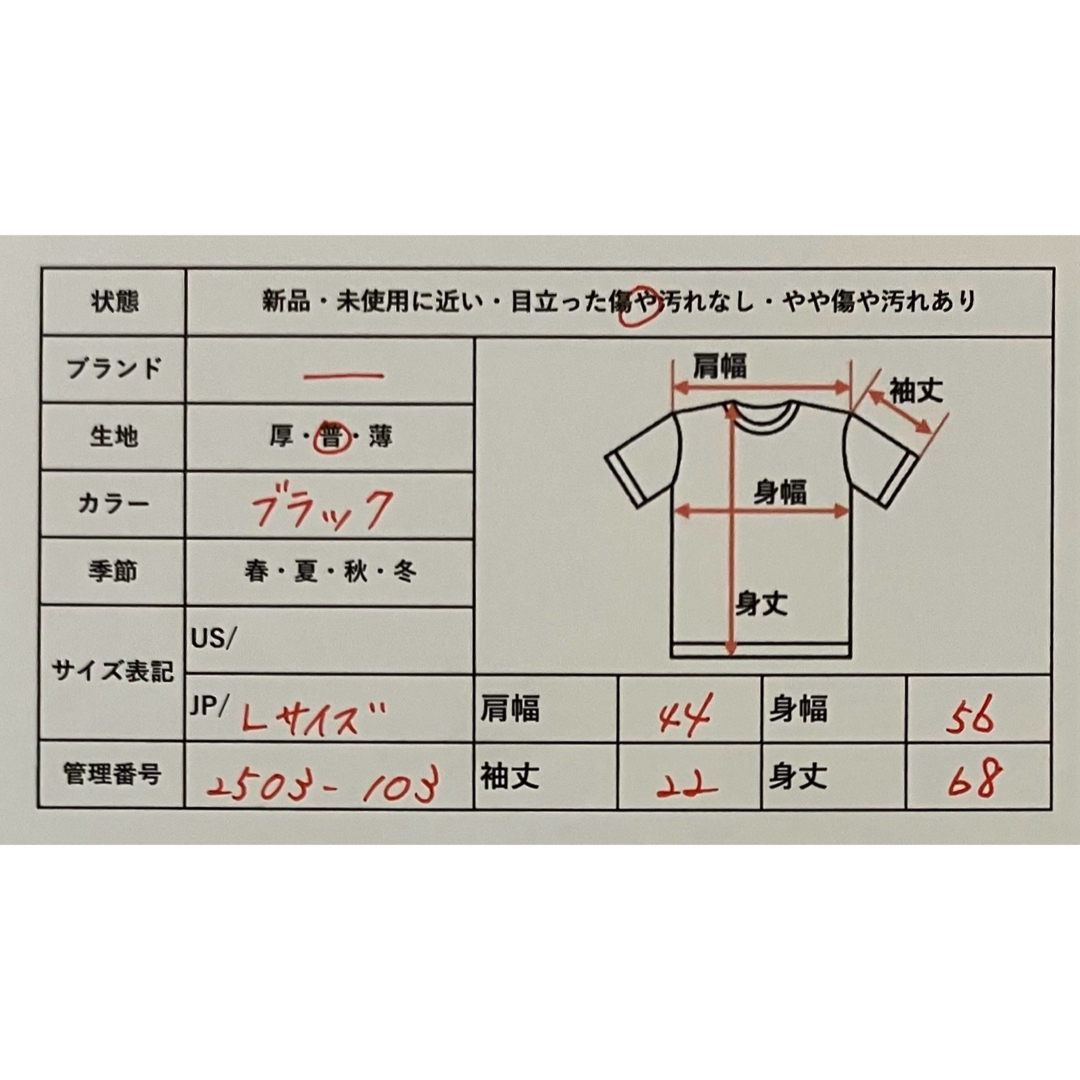 状態 新品・未使用に近い・目立った傷や汚れなし・やや傷や汚れあり
ブランド ー
生地 厚・普・薄
カラー ブラック
季節 春・夏・秋・冬
サイズ表記
US/
JP/ Lサイズ
管理番号 2503-103
肩幅
袖丈
身幅
身丈
肩幅 44 身幅 56
袖丈 22 身丈 68